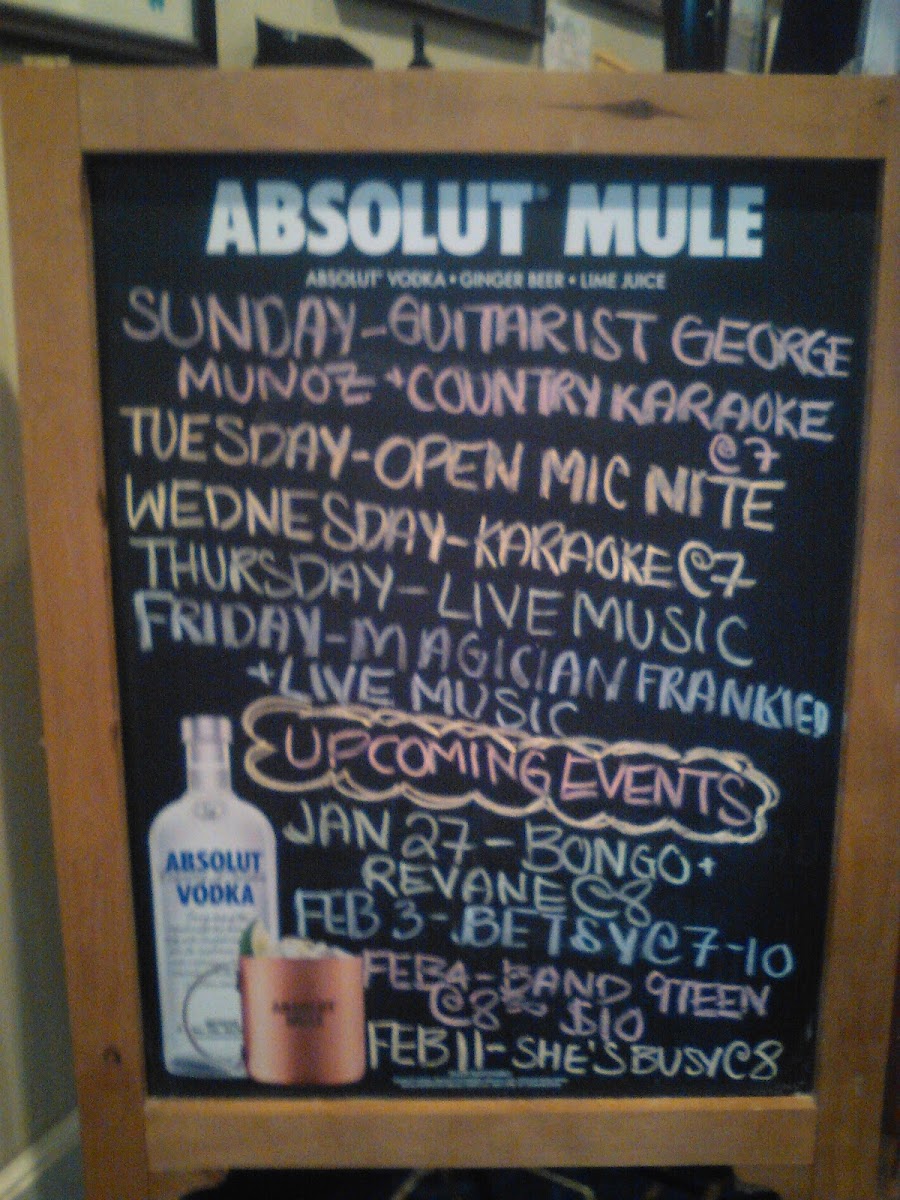 ABSOLUT® MULE
ABSOLUT® VODKA • GINGER BEER • LIME JUICE
SUNDAY-GUITARIST GEORGE
MUNOZ + COUNTRY KARAOKE
@7
TUESDAY-OPEN MIC NITE
WEDNESDAY-KARAOKE @7
THURSDAY-LIVE MUSIC
FRIDAY-MAGICIAN FRANKIED
+LIVE MUSIC
UPCOMING EVENTS
JAN 27-BONGO+
REVANE @8
FEB 3-BETSY @7-10
FEB 4-BAND 9TEEN
@8 $10
FEB 11-SHE'S BUSY @8
ABSOLUT
VODKA
ABSOLUT
MULE